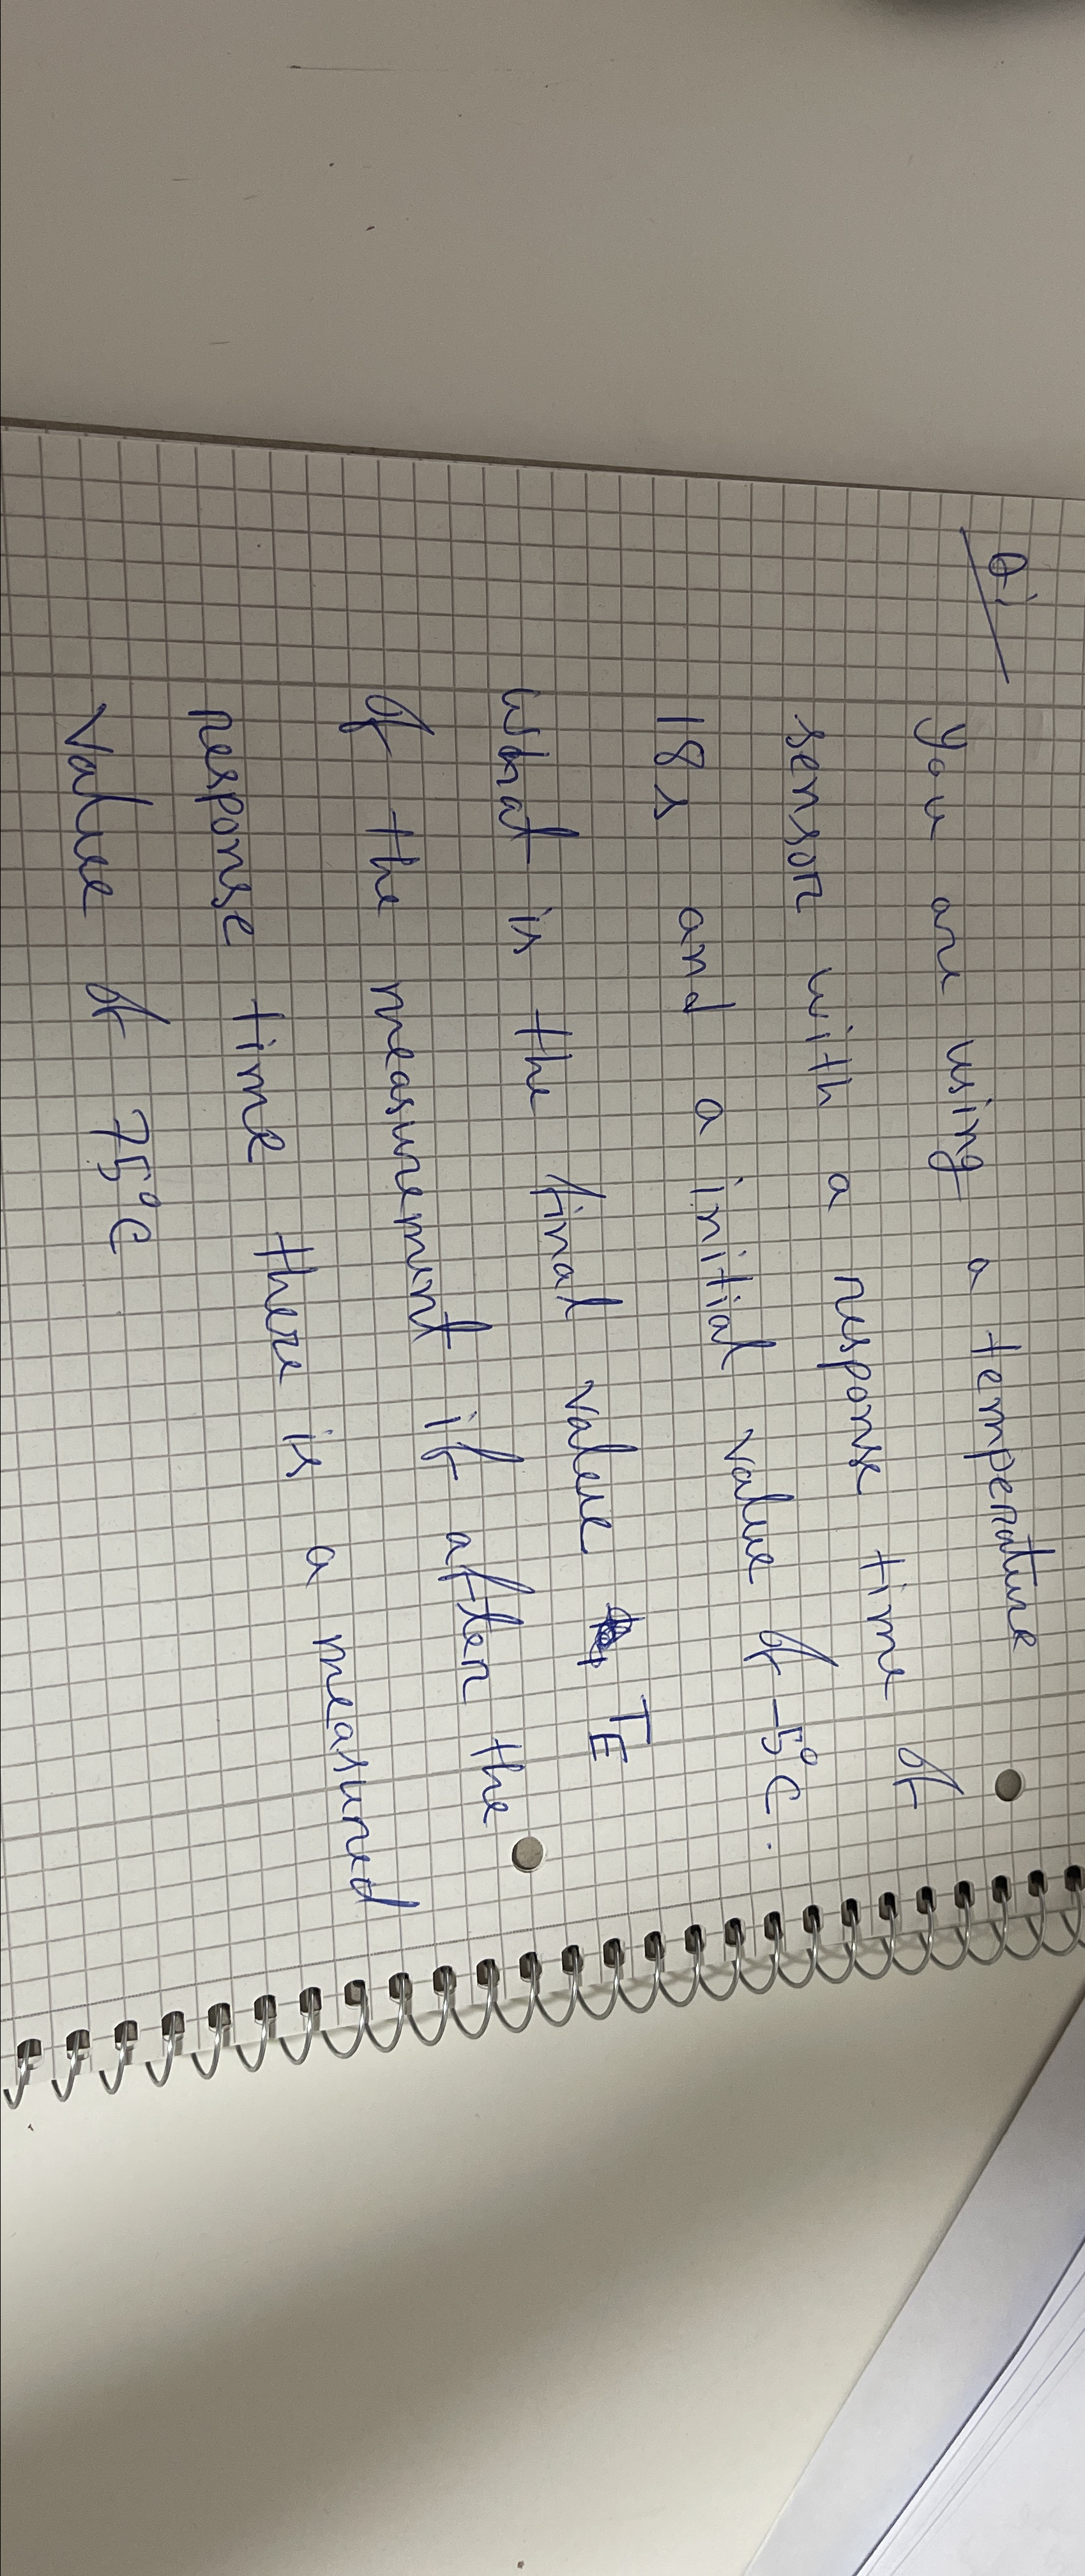 Q1
You are using a temperature
sensor with a response time of
18s and a initial value of -5°C.
What is the final value TE
of the measurement if after the
response time there is a measured
value of 75°C